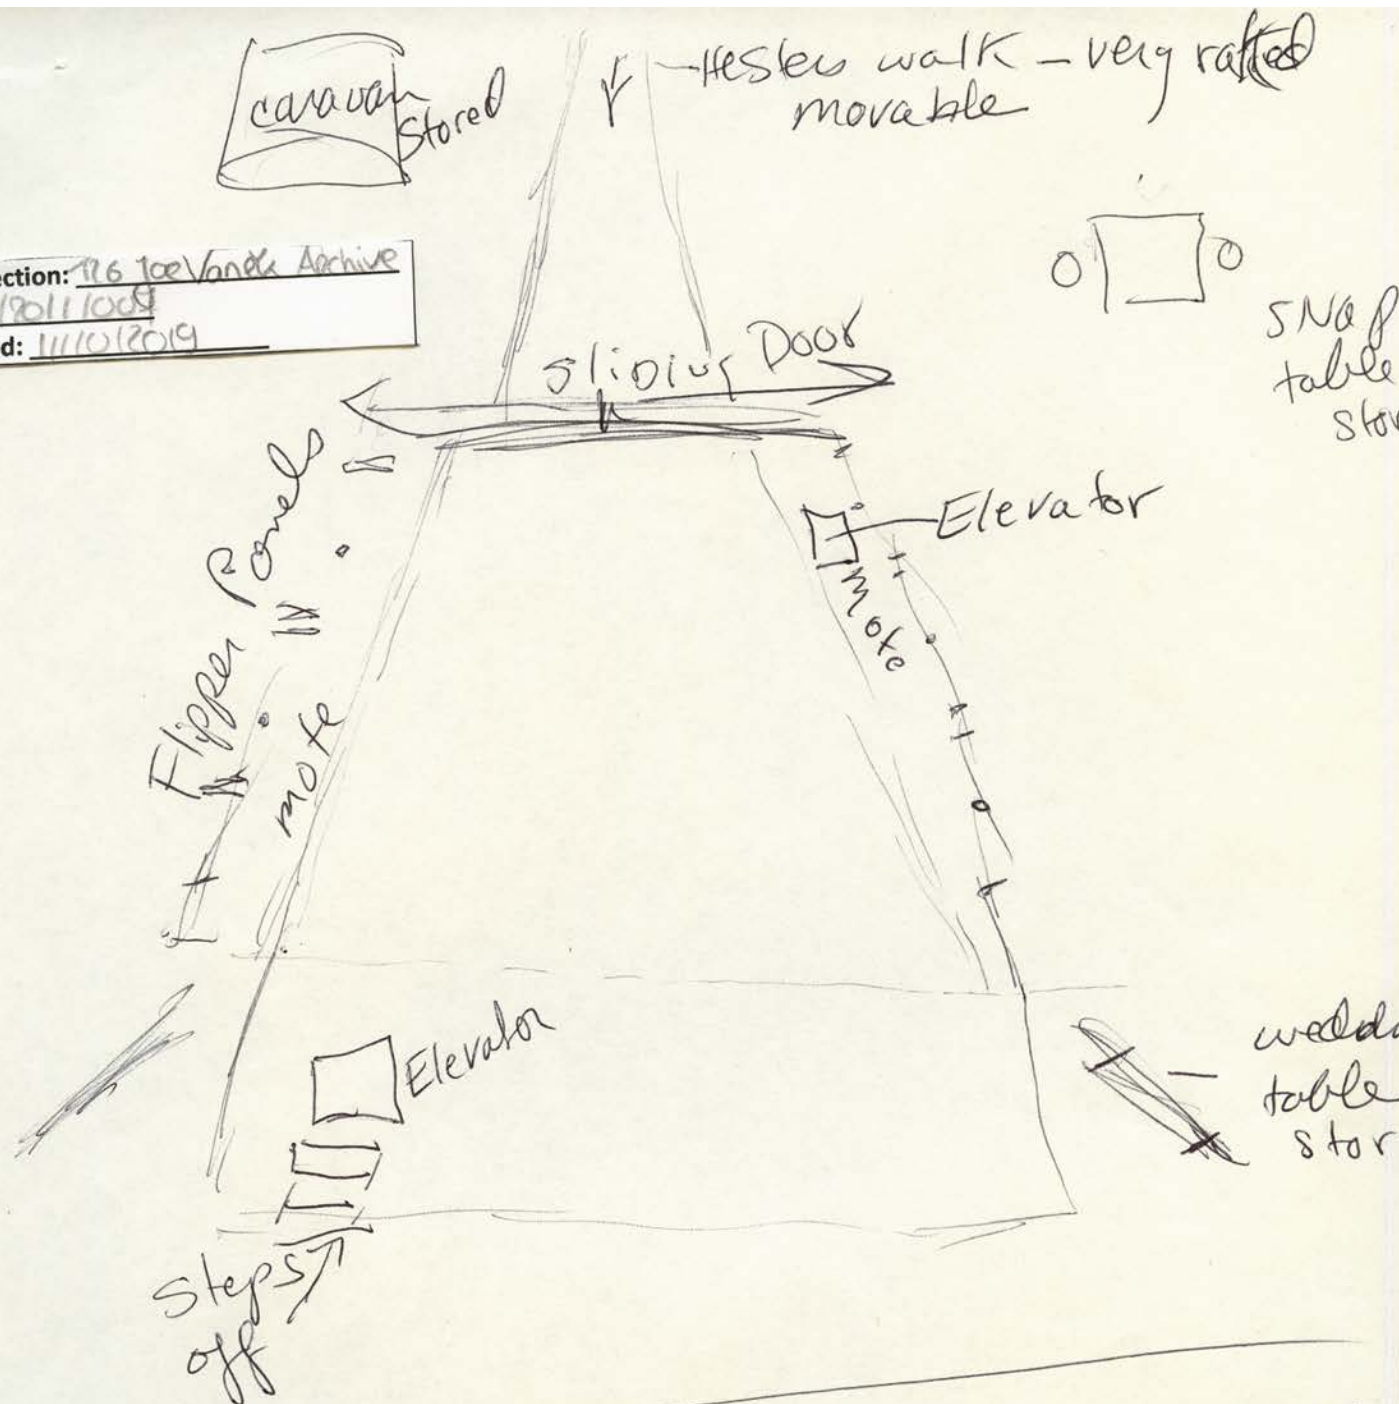 caravan
Stored
Hesters walk – very raked
movable
ection: T26 Joe Vanek Archive
/2011/009
d: 11/10/2019
Sliding Door
SNap
table
stor
Flipper Panels
Elevator
mote
mote
Elevator
wedd
table
stor
Steps
off